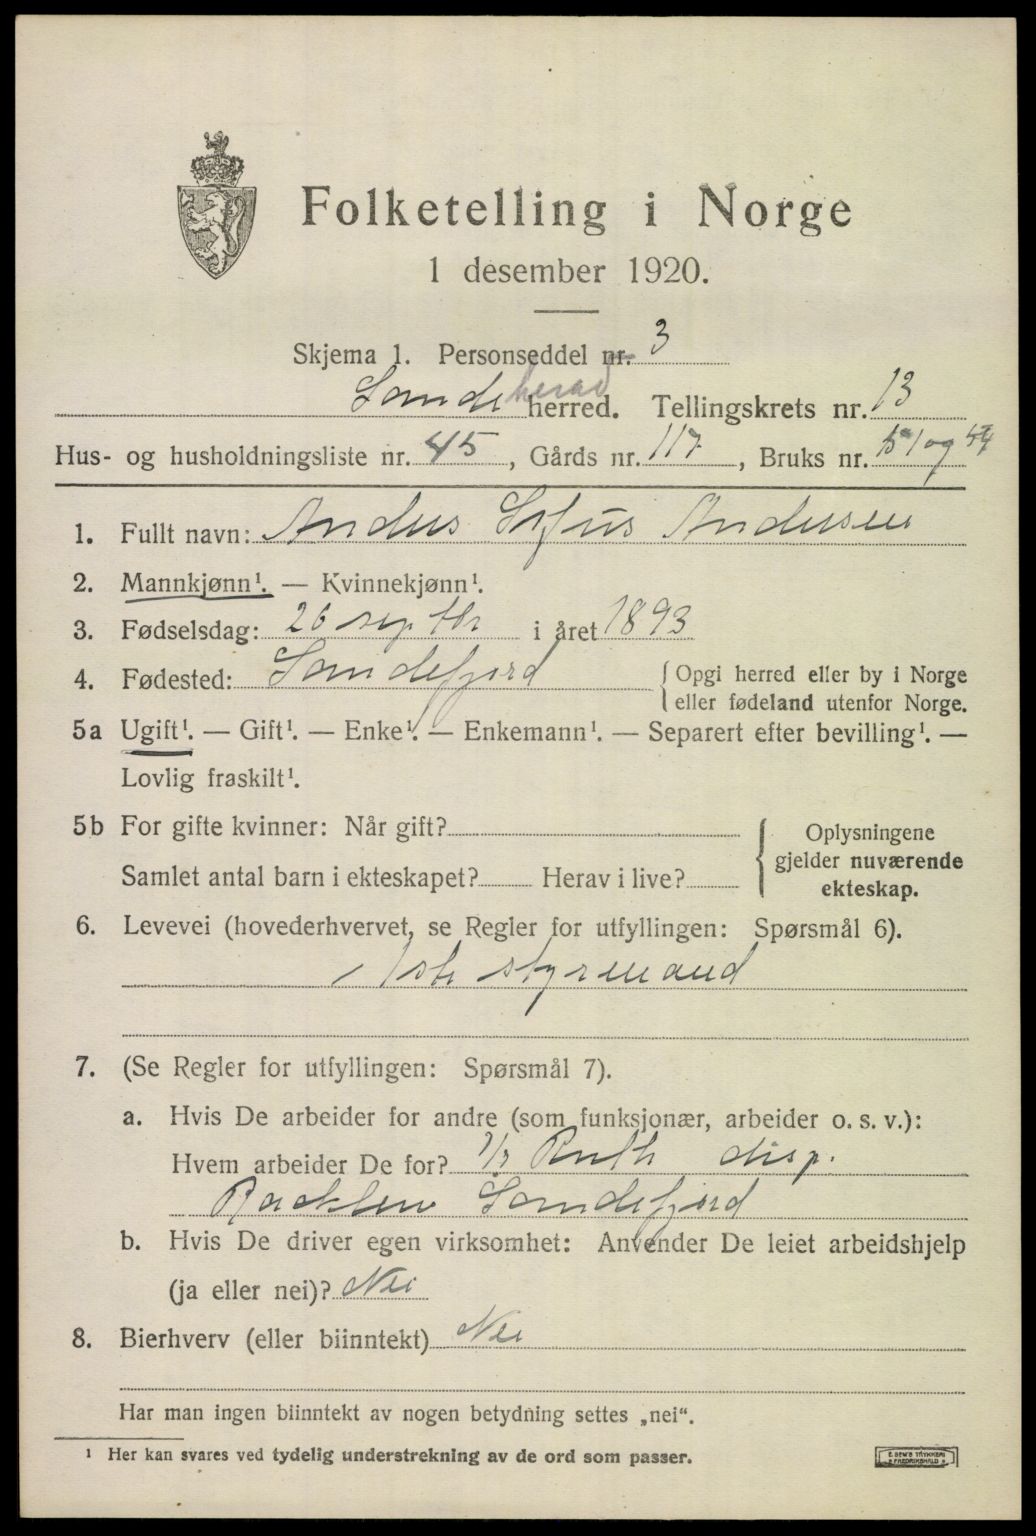 Folketelling i Norge
1 desember 1920.
Skjema 1. Personseddel nr. 3
Sandeherad herred. Tellingskrets nr. 13
Hus- og husholdningsliste nr. 45, Gårds nr. 117, Bruks nr. 51 og 54
1. Fullt navn: Anders Sofus Andersen
2. Mannkjønn¹. — Kvinnekjønn¹.
3. Fødselsdag: 26 septbr i året 1893
4. Fødested: Sandefjord { Opgi herred eller by i Norge
eller fødeland utenfor Norge.
5a Ugift¹. — Gift¹. — Enke¹. — Enkemann¹. — Separert efter bevilling¹. —
Lovlig fraskilt¹.
5b For gifte kvinner: Når gift? { Oplysningene
gjelder nuværende
Samlet antal barn i ekteskapet? Herav i live?
ekteskap.
6. Levevei (hovederhvervet, se Regler for utfyllingen: Spørsmål 6).
1ste styrmand
7. (Se Regler for utfyllingen: Spørsmål 7).
a. Hvis De arbeider for andre (som funksjonær, arbeider o. s. v.):
Hvem arbeider De for? Ruth disp.
Sandefjord
b. Hvis De driver egen virksomhet: Anvender De leiet arbeidshjelp
(ja eller nei)? Nei
8. Bierhverv (eller biinntekt) Nei
Har man ingen biinntekt av nogen betydning settes „nei“.
¹ Her kan svares ved tydelig understrekning av de ord som passer.